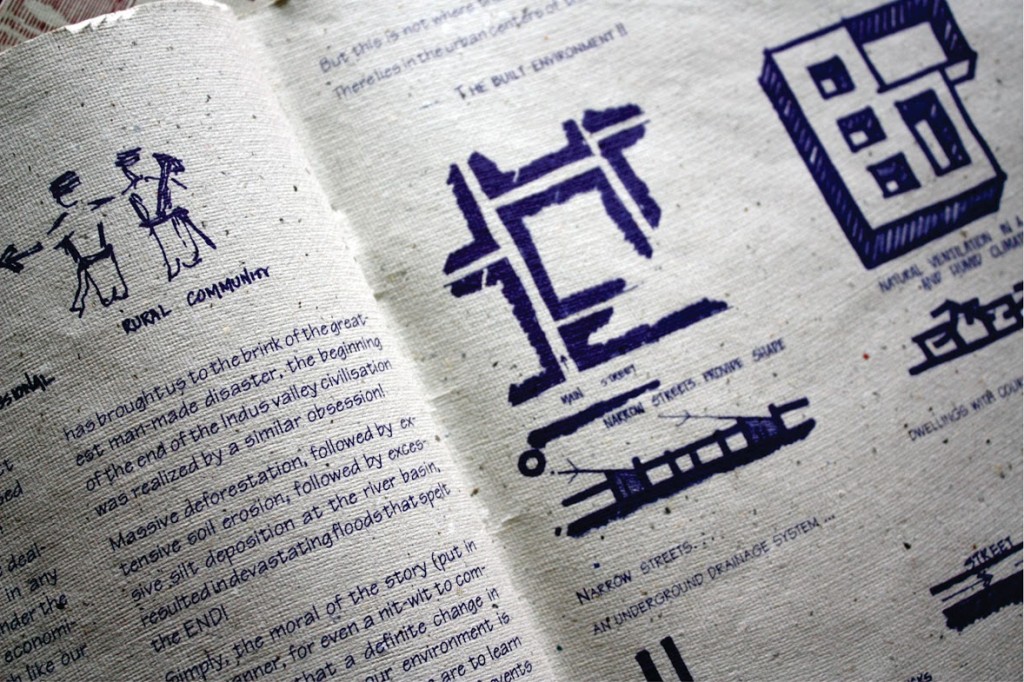 RURAL COMMUNITY
has brought us to the brink of the great-
est man-made disaster, the beginning
of the end of the Indus valley civilisation
was realized by a similar obsession!
Massive deforestation, followed by ex-
tensive soil erosion, followed by exces-
sive silt deposition at the river basin,
resulted in devastating floods that spelt
the END!
Simply, the moral of the story (put in
anner, for even a nit-wit to com-
that a definite change in
our environment is
are to learn
events
deal-
in any
nder the
economi-
like our
But this is not where the
There lies in the urban centers of
THE BUILT-ENVIRONMENT!!
MAIN STREET
NARROW STREETS PROVIDE SHADE
NARROW STREETS...
AN UNDERGROUND DRAINAGE SYSTEM ...
NATURAL VENTILATION IN A
-AND HUMID CLIMAT
DWELLINGS WITH COUR
STREET